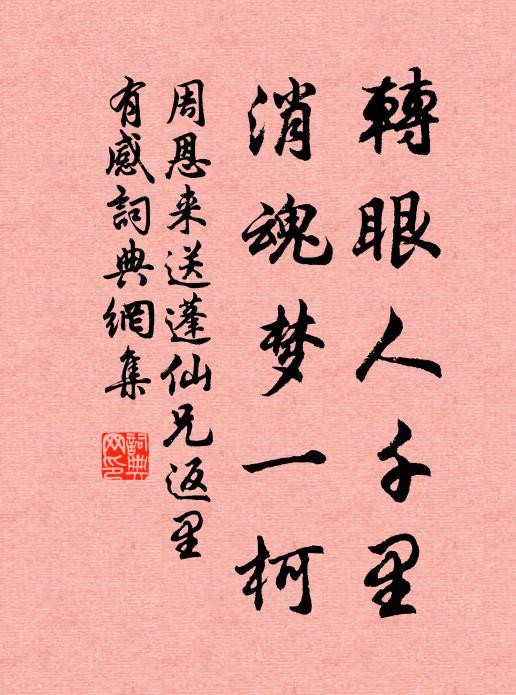 轉眼人千里
消魂梦一柯
周恩来送蓬仙兄返里
有感詞典網集
詞典网印